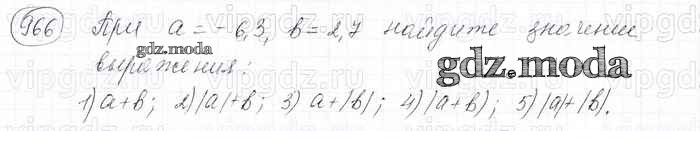 966 При a = -6,3, b = 2,7 найдите значение
выражения:
1) a+b; 2) |a|+b; 3) a+|b|; 4) |a+b|; 5) |a|+|b|.
gdz.moda
gdz.moda